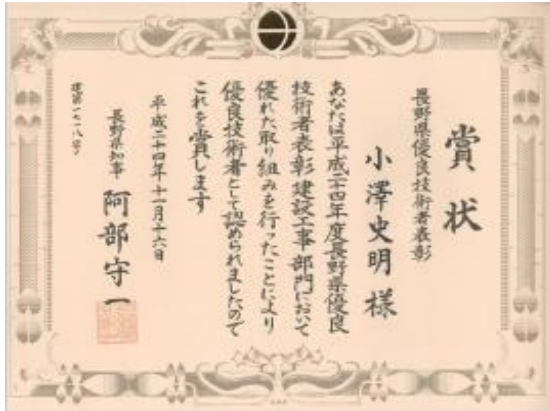 賞状
長野県優良技術者表彰
小澤史明 様
あなたは平成二十四年度長野県優良
技術者表彰建設工事部門において
優れた取り組みを行ったことにより
優良技術者として認められましたので
これを賞します
平成二十四年十一月十六日
長野県知事 阿部守一